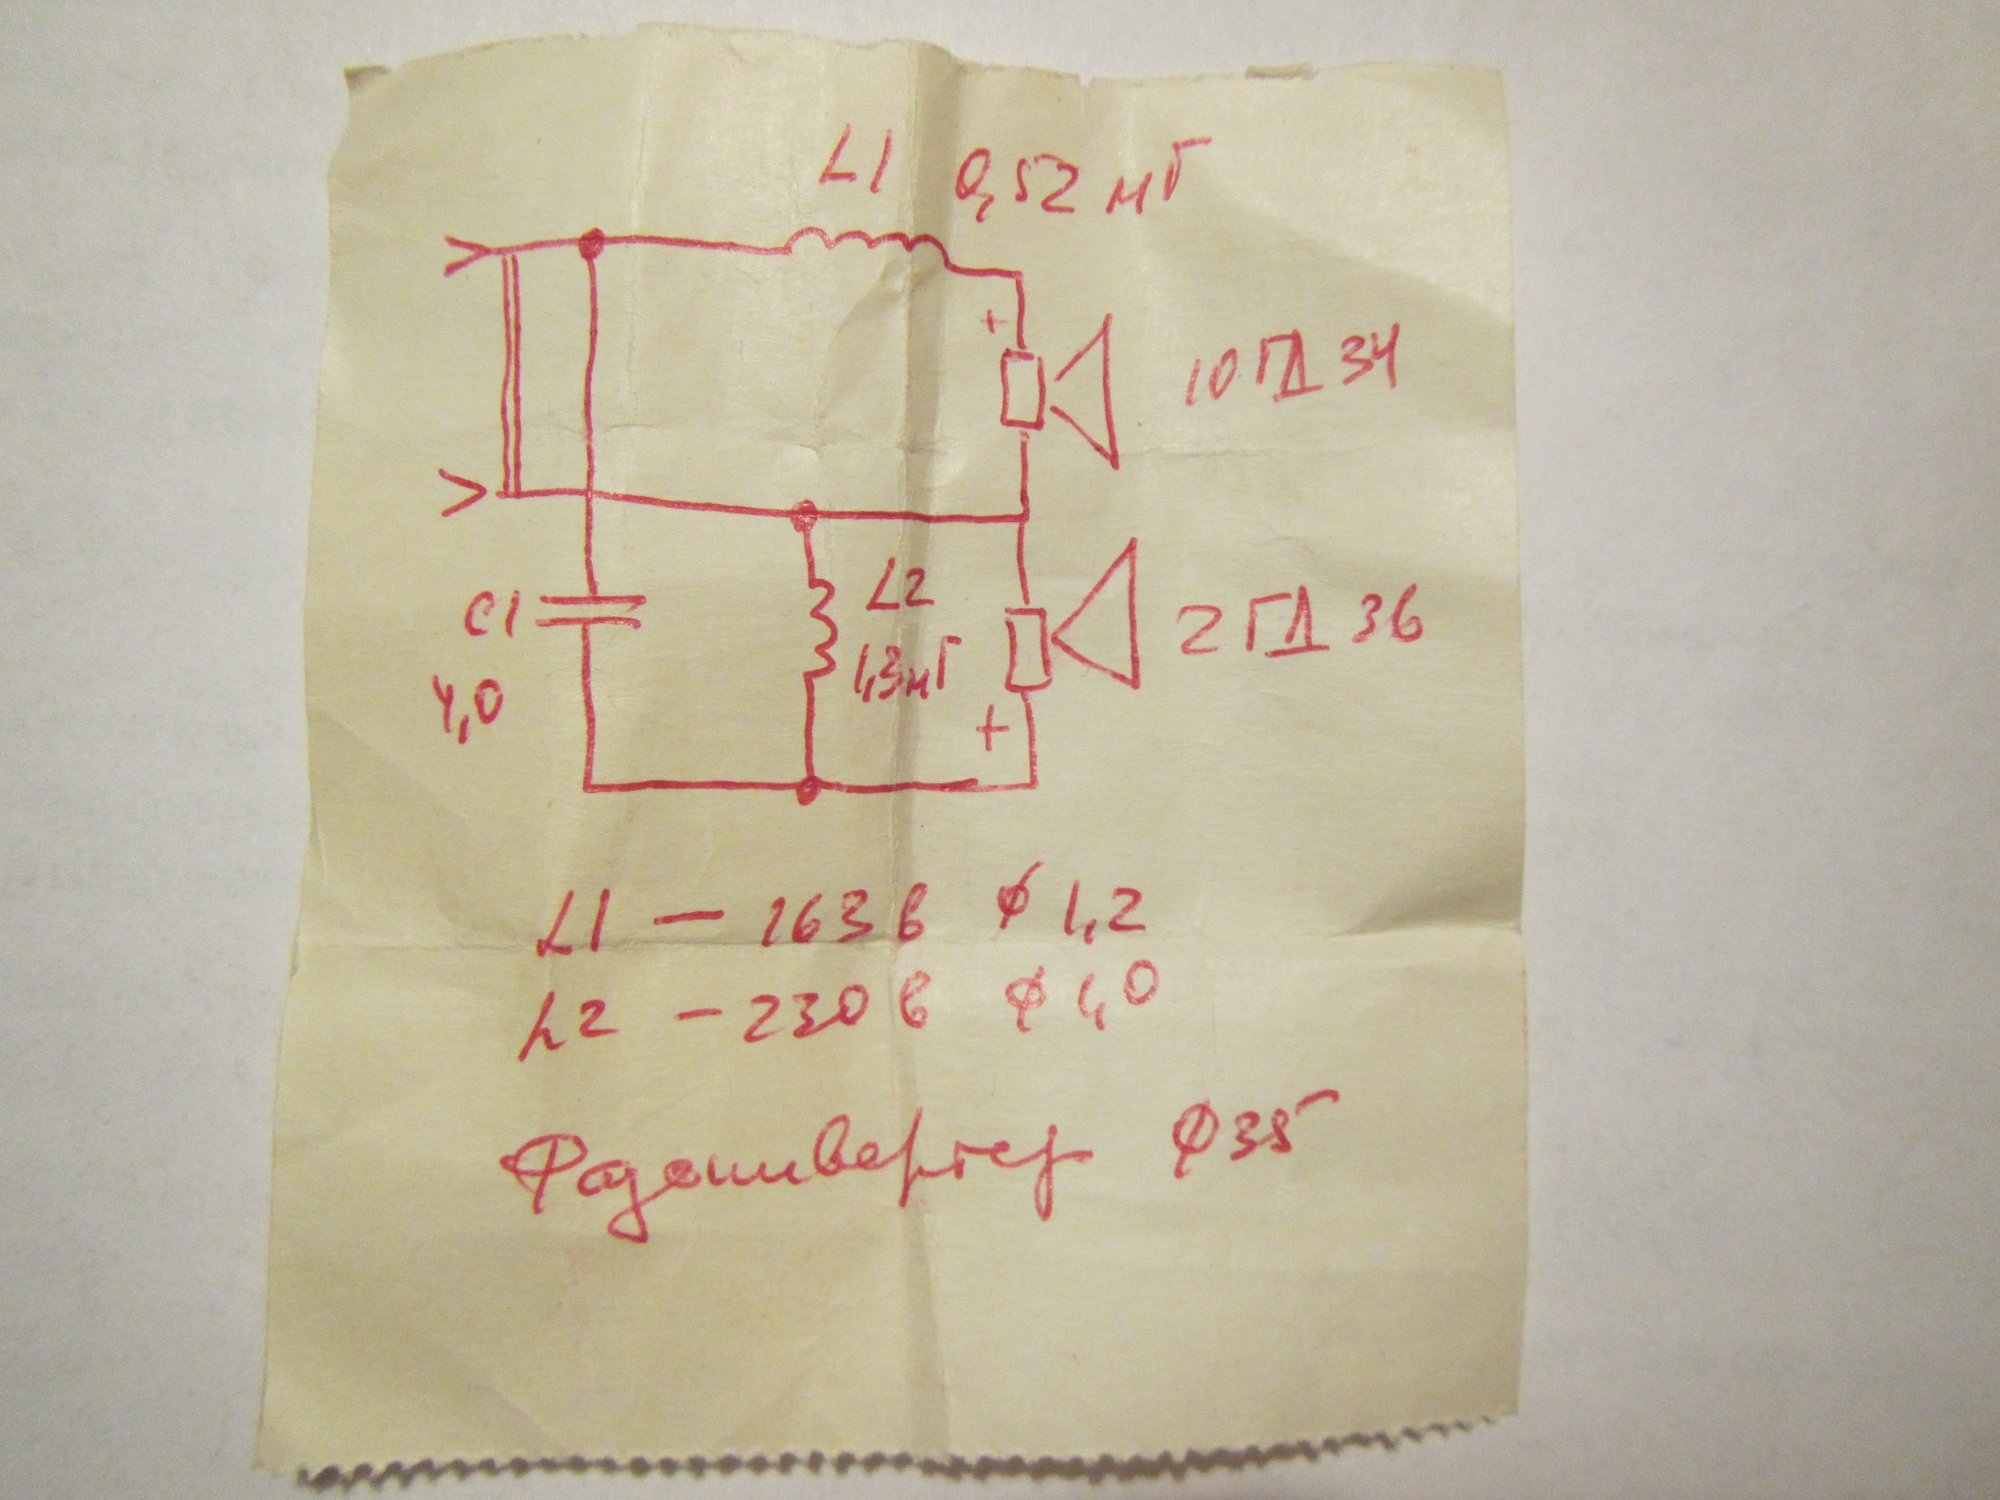 L1 0,52 мГ
+
10 ГД 34
C1
4,0
L2
1,3 мГ
2 ГД 36
+
L1 — 163 в ϕ 1,2
L2 — 230 в ϕ 1,0
Фазоинвертер ϕ 35